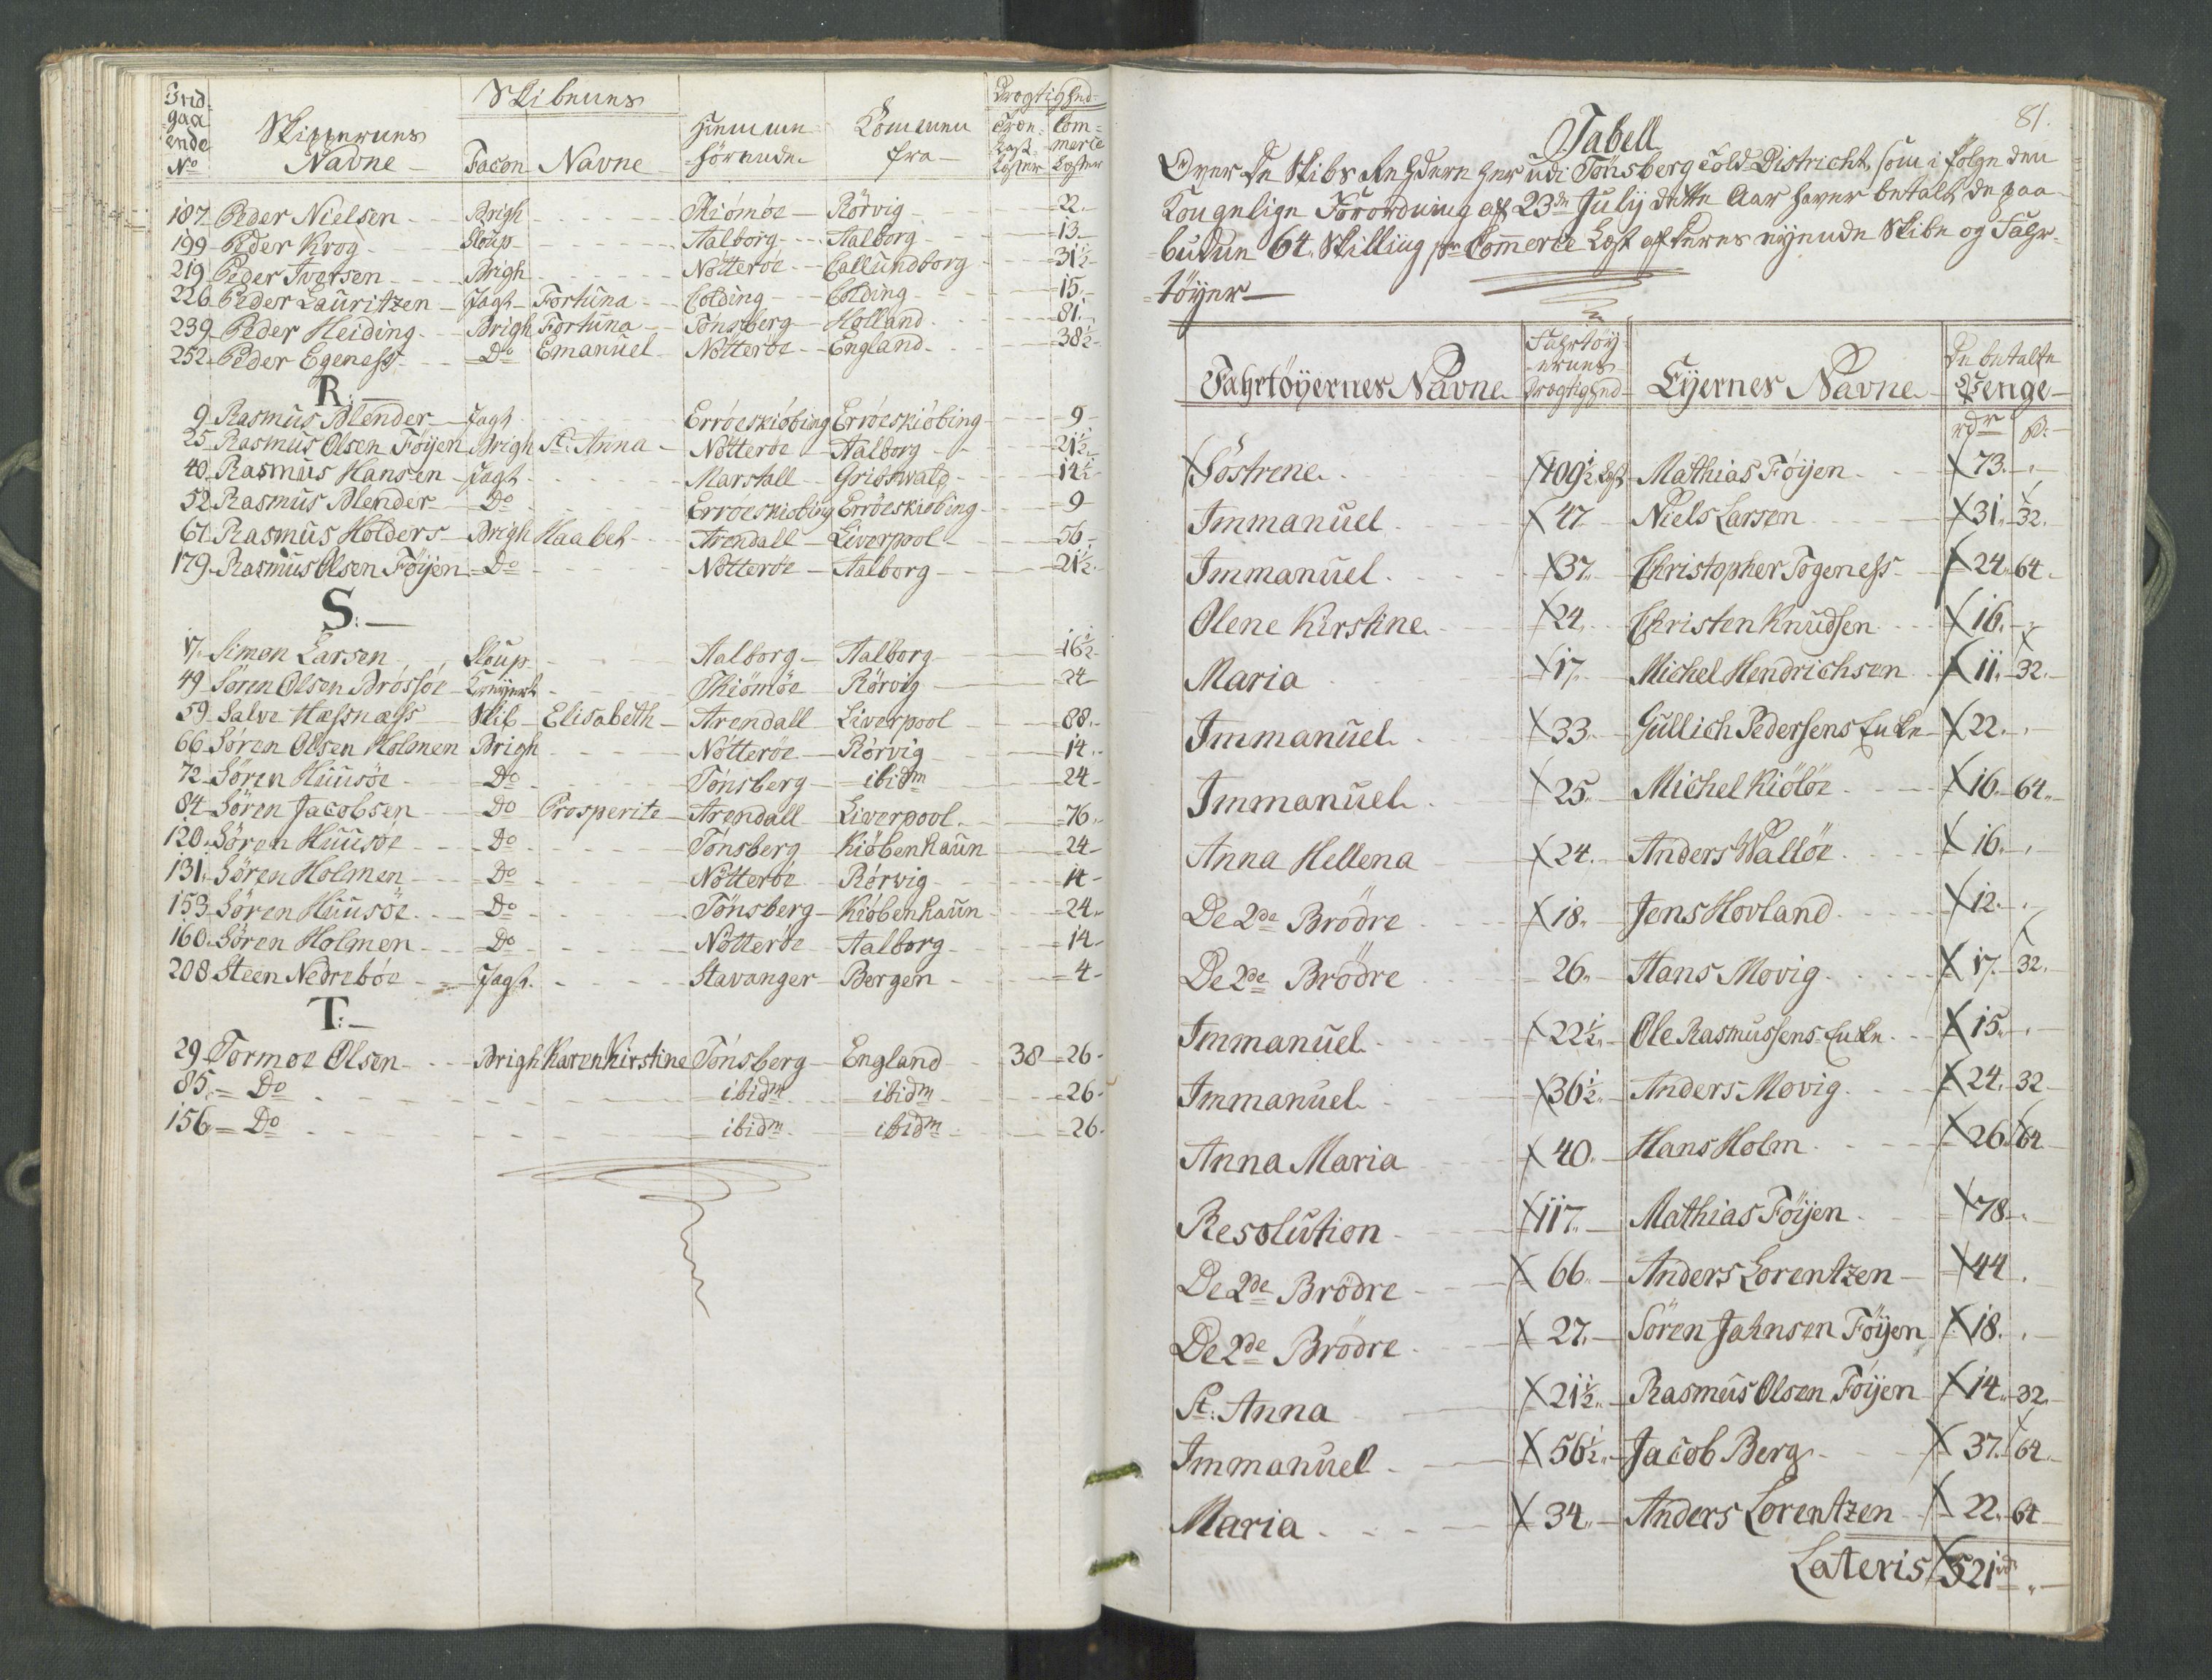 Ind-
gaa
ende
No
Skippernes
Navne
Skibenes
Facon Navne
Hiemme-
hörende
Kommen
fra
Drægtighed
Træ- Læst Læster
Com-merce Læster
187 Peder Nielsen Brigh Tiömöe Rörvig 22
199 Peder Krog Sloup Aalborg Aalborg 13
219 Peder Iversen Brigh Nötteröe Callundborg 31½
226 Peder Lauritzen Jagt Fortuna Colding Colding 15
239 Peder Heiding Brigh Fortuna Tönsberg Holland 81
252 Peder Egeness Do Emanuel Nötteröe England 38½
R:
9 Rasmus Blender Jagt Erröeskiöbing Erröeskiöbing 9
25 Rasmus Olsen Föyen Brigh St: Anna Nötteröe Aalborg 21½
40 Rasmus Hansen Jagt Marstall Gribswald 14½
52 Rasmus Blender Do Erröeskiöbing Erröeskiöbing 9
61 Rasmus Holders Brigh Haabet Arendall Liverpool 56
179 Rasmus Olsen Föyen Do Nötteröe Aalborg 21½
S:
17 Simon Larsen Sloup Aalborg Aalborg 16½
49 Sören Olsen Brössöe Creyert Tiömöe Rörvig 24
59 Salve Hæsnæss Skib Elisabeth Arendall Liverpool 88
66 Sören Olsen Holmen Brigh Nötteröe Rörvig 14
72 Sören Huusöe Do Tönsberg ibidm 24
84 Sören Jacobsen Do Prosperite Arendall Liverpool 76
120 Sören Huusöe Do Tönsberg Kiöbenhaun 24
131 Sören Holmen Do Nötteröe Rörvig 14
153 Sören Huusöe Do Tönsberg Kiöbenhaun 24
160 Sören Holmen Do Nötteröe Aalborg 14
208 Steen Nedreböe Jagt Stavanger Bergen 4
T:
29 Tormoe Olsen Brigh Karen Kirstine Tönsberg England 38 26
85 Do ibidm ibidm 26
156 Do ibidm ibidm 26
81.
Tabell
Over De Skibs Rehdere her udi Tönsberg Told District, som i fölge den
Kongelige Forordning af 23de July dette Aar haver betalt de paa-
budne 64 Skilling pr Commerce Læst af deres eyende Skibe og Fahr-
töyer
Fahrtöyernes Navne
Fahrtöy-
ernes
Drægtighed
Eyernes Navne
De betalte
Penge
rdr s:
Söstrene 109½ Læst Mathias Föyen 73
Immanuel 47 Niels Larsen 31 32
Immanuel 37 Christopher Togeness 24 64
Olene Kirstine 24 Christen Knudsen 16
Maria 17 Michel Hendrichsen 11 32
Immanuel 33 Gullich Pedersens Enke 22
Immanuel 25 Michel Kiölöe 16 64
Anna Hellena 24 Anders Wallöe 16
De 2de Brödre 18 Jens Hovland 12
De 2de Brödre 26 Hans Movig 17 32
Immanuel 22½ Ole Rasmussens Enke 15
Immanuel 36½ Anders Movig 24 32
Anna Maria 40 Hans Holm 26 64
Resolution 117 Mathias Föyen 78
De 2de Brödre 66 Anders Lorentzen 44
De 2de Brödre 27 Sören Jahnsen Föyen 18
St: Anna 21½ Rasmus Olsen Föyen 14 32
Immanuel 56½ Jacob Berg 37 64
Maria 34 Anders Lorentzen 22 64
Lateris 521 rd